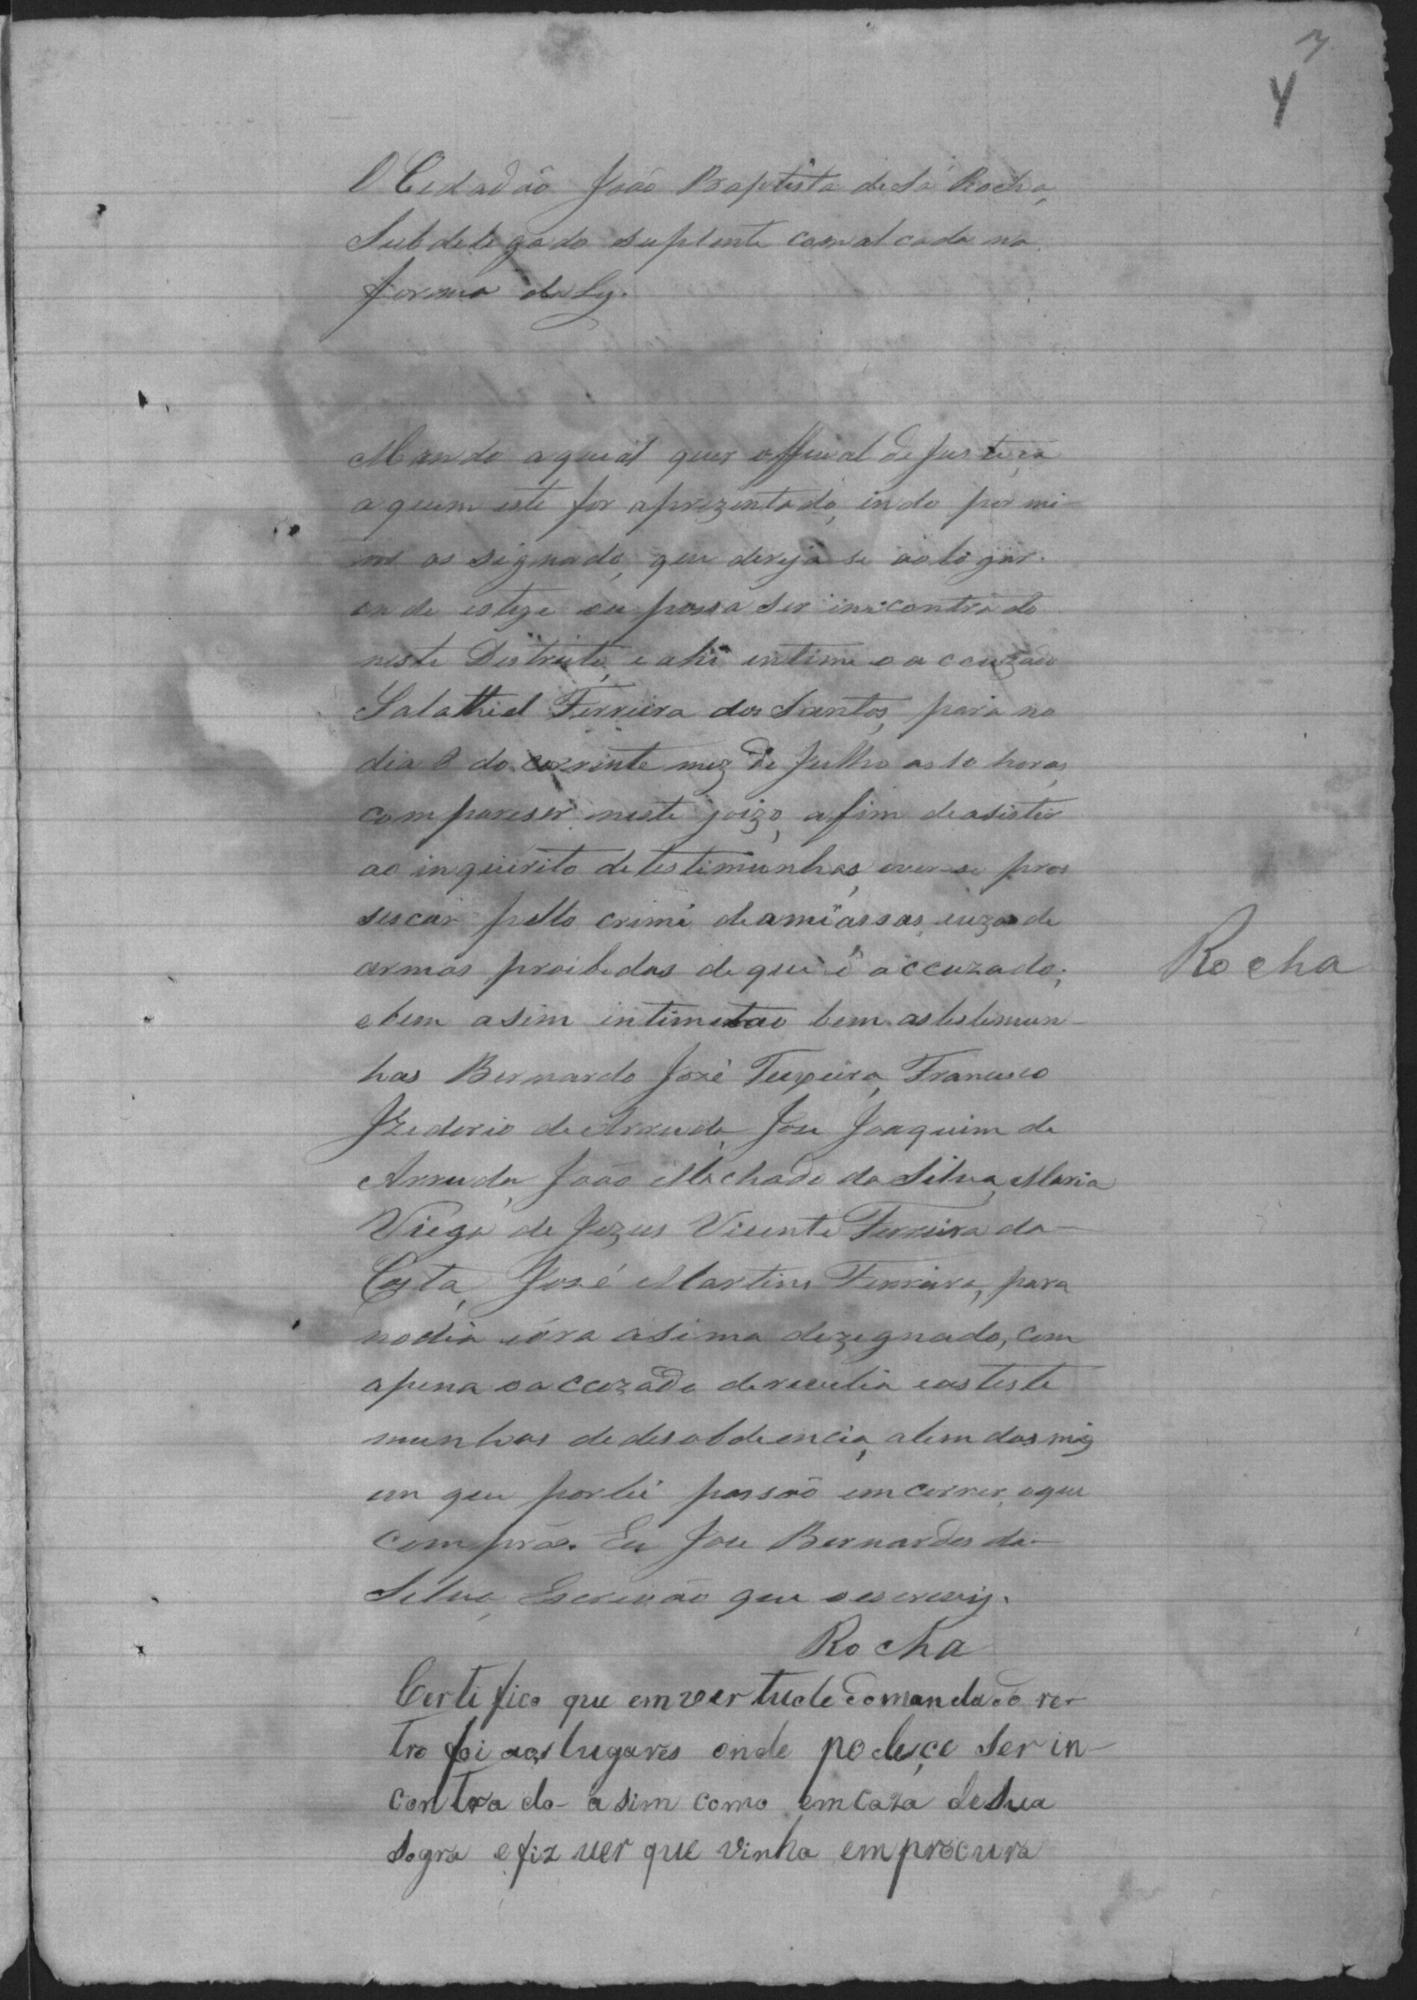 4
O Cidadão João Baptista de Sá Rocha,
Subdelegado suplente com alcada na
forma da Ley.
Mando aqualquer official de Justiça
aquem este for aprezentado, indo por mi-
m assignado, que dereja se ao logar
onde esteje ou possa ser incontrado
neste Destricto, e ahi intime o accuzado
Salathiel Ferreira dos Santos, para no
dia 8 do corrente mez de Julho as 10 horas,
compareser neste joizo, afim de asistir
ao inquerito de testimunhas, e ver-se pros
sescar pello crime de amiassas, e uzo de
armas proibedas de que é accuzado;
Rocha
e bem asim intime tão bem as testemun-
has Bernardo José Teixeira, Francisco
Izedorio de Arruda, Jose Joaquim de
Arruda, João Machado da Silva, Maria
Viega de Jezus Vicente Ferreira da
Costa, José Martins Ferreira, para
no dia e óra asima dezegnado, com
apena o accuzado de revelia e as teste
munhas de desobdeencia, alem das mais
em que por lei possão encorrer, o que
compra. Eu Jose Bernardes da
Silva, Escrivão que o escrevy.
Rocha
Certifico que em vertude do mandado re-
tro foi aos lugares onde podeçe ser in-
contrado asim como em caza de sua
sogra e fiz ver que vinha em procura